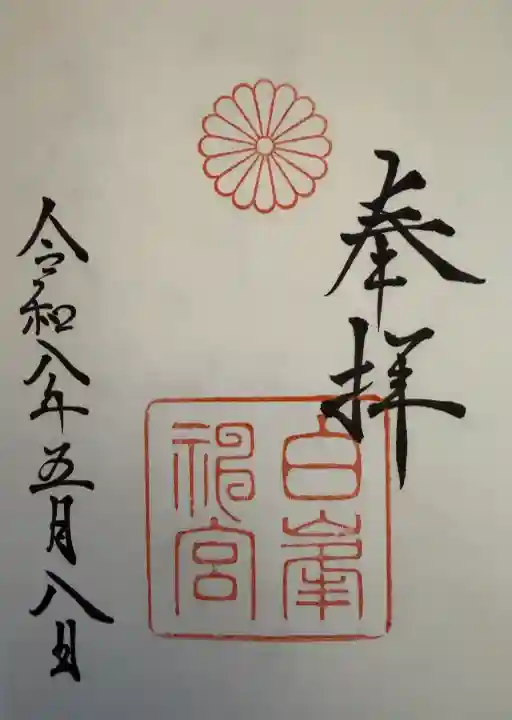 奉拝
白峯
神宮
令和八年五月八日